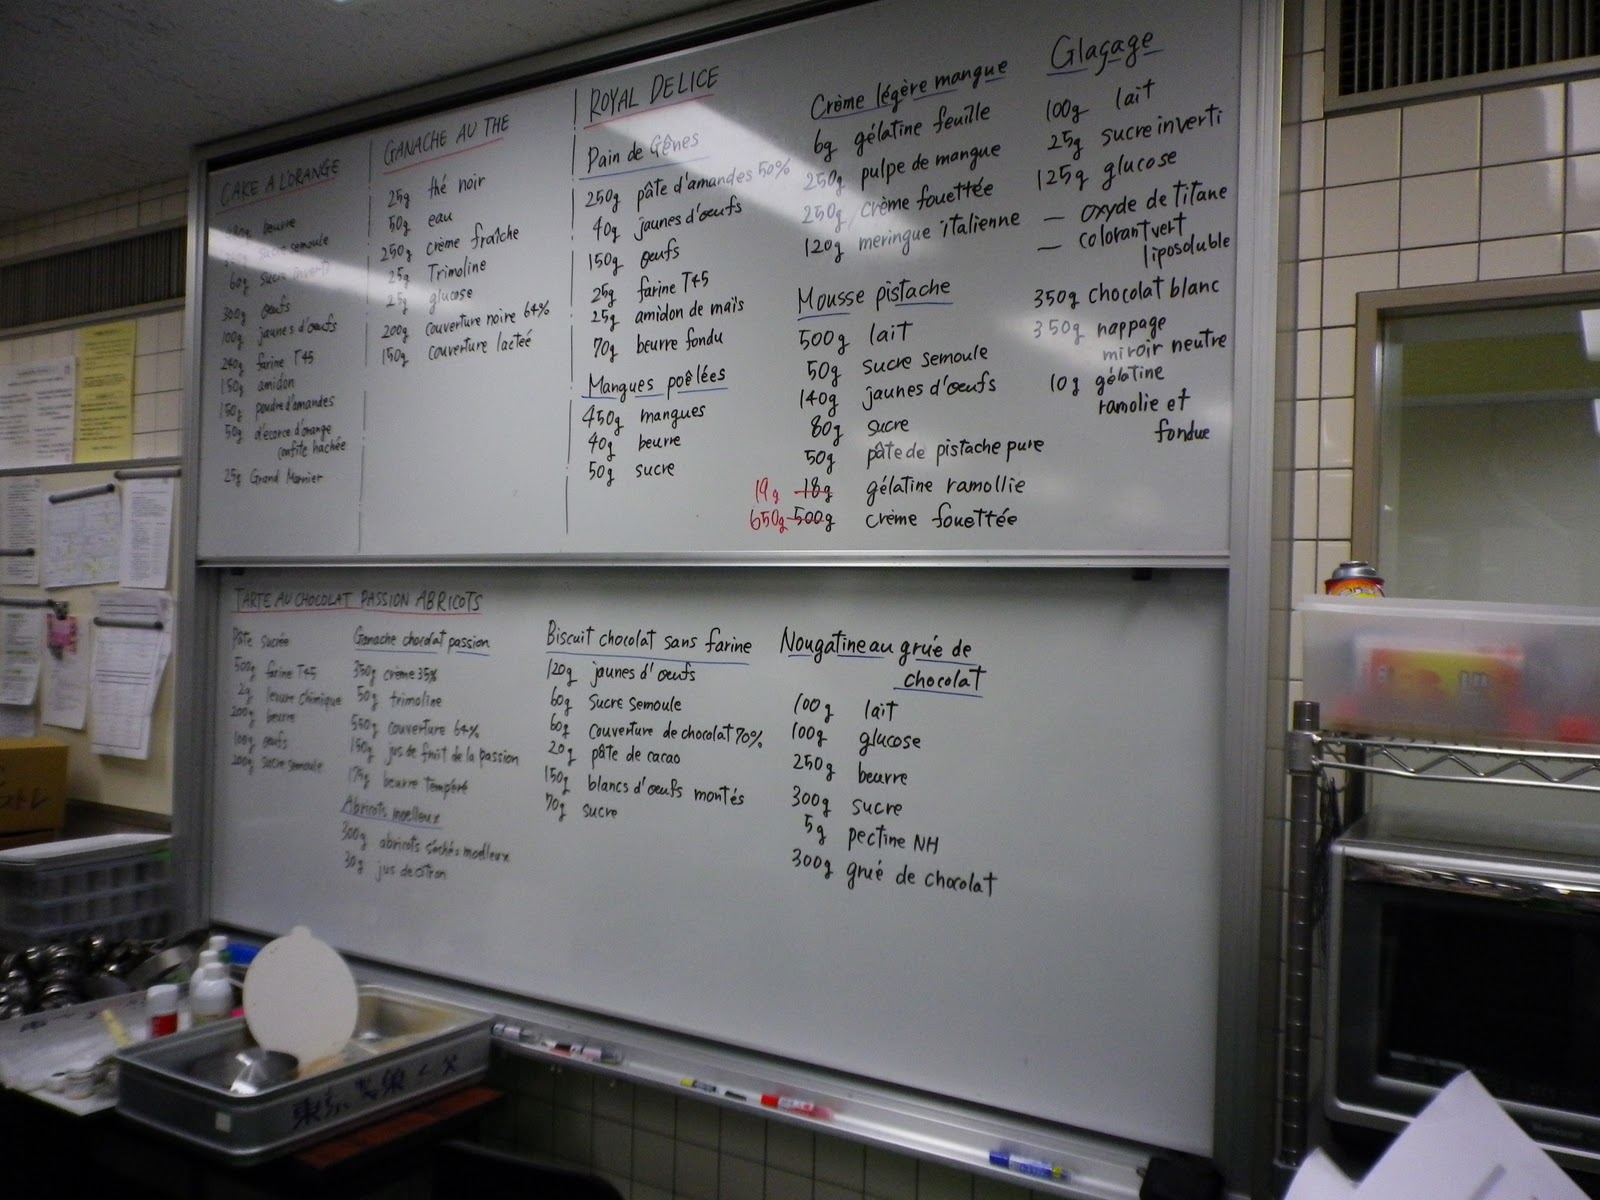 CAKE A L'ORANGE
beurre
sucre semoule
60g sucre inverti
300g œufs
100g jaunes d'œufs
240g farine T45
150g amidon
150g poudre d'amandes
50g d'écorce d'orange
confite hachée
25g Grand Marnier
GANACHE AU THE
25g thé noir
50g eau
250g crème fraîche
25g Trimoline
25g glucose
200g couverture noire 64%
150g couverture lacteé
ROYAL DELICE
Pain de Gênes
250g pâte d'amandes 50%
40g jaunes d'œufs
150g œufs
25g farine T45
25g amidon de maïs
70g beurre fondu
Mangues poêlées
450g mangues
40g beurre
50g sucre
Crème légère mangue
6g gélatine feuille
250g pulpe de mangue
250g crème fouettée
120g meringue italienne
Mousse pistache
500g lait
50g sucre semoule
140g jaunes d'œufs
80g sucre
50g pâte de pistache pure
19g 18g gélatine ramollie
650g 500g crème fouettée
Glaçage
100g lait
25g sucre inverti
125g glucose
— oxyde de titane
— colorant vert
liposoluble
350g chocolat blanc
350g nappage
miroir neutre
10g gélatine
ramolie et
fondue
TARTE AU CHOCOLAT PASSION ABRICOTS
Pâte sucrée
500g farine T45
2g levure chimique
200g beurre
100g œufs
200g sucre semoule
Ganache chocolat passion
350g crème 35%
50g trimoline
550g couverture 64%
150g jus de fruit de la passion
175g beurre tempéré
Abricots moelleux
300g abricots séchés moelleux
30g jus de citron
Biscuit chocolat sans farine
120g jaunes d'œufs
60g Sucre Semoule
60g couverture de chocolat 70%
20g pâte de cacao
150g blancs d'œufs montés
70g sucre
Nougatine au grué de
chocolat
100g lait
100g glucose
250g beurre
300g sucre
5g pectine NH
300g grué de chocolat